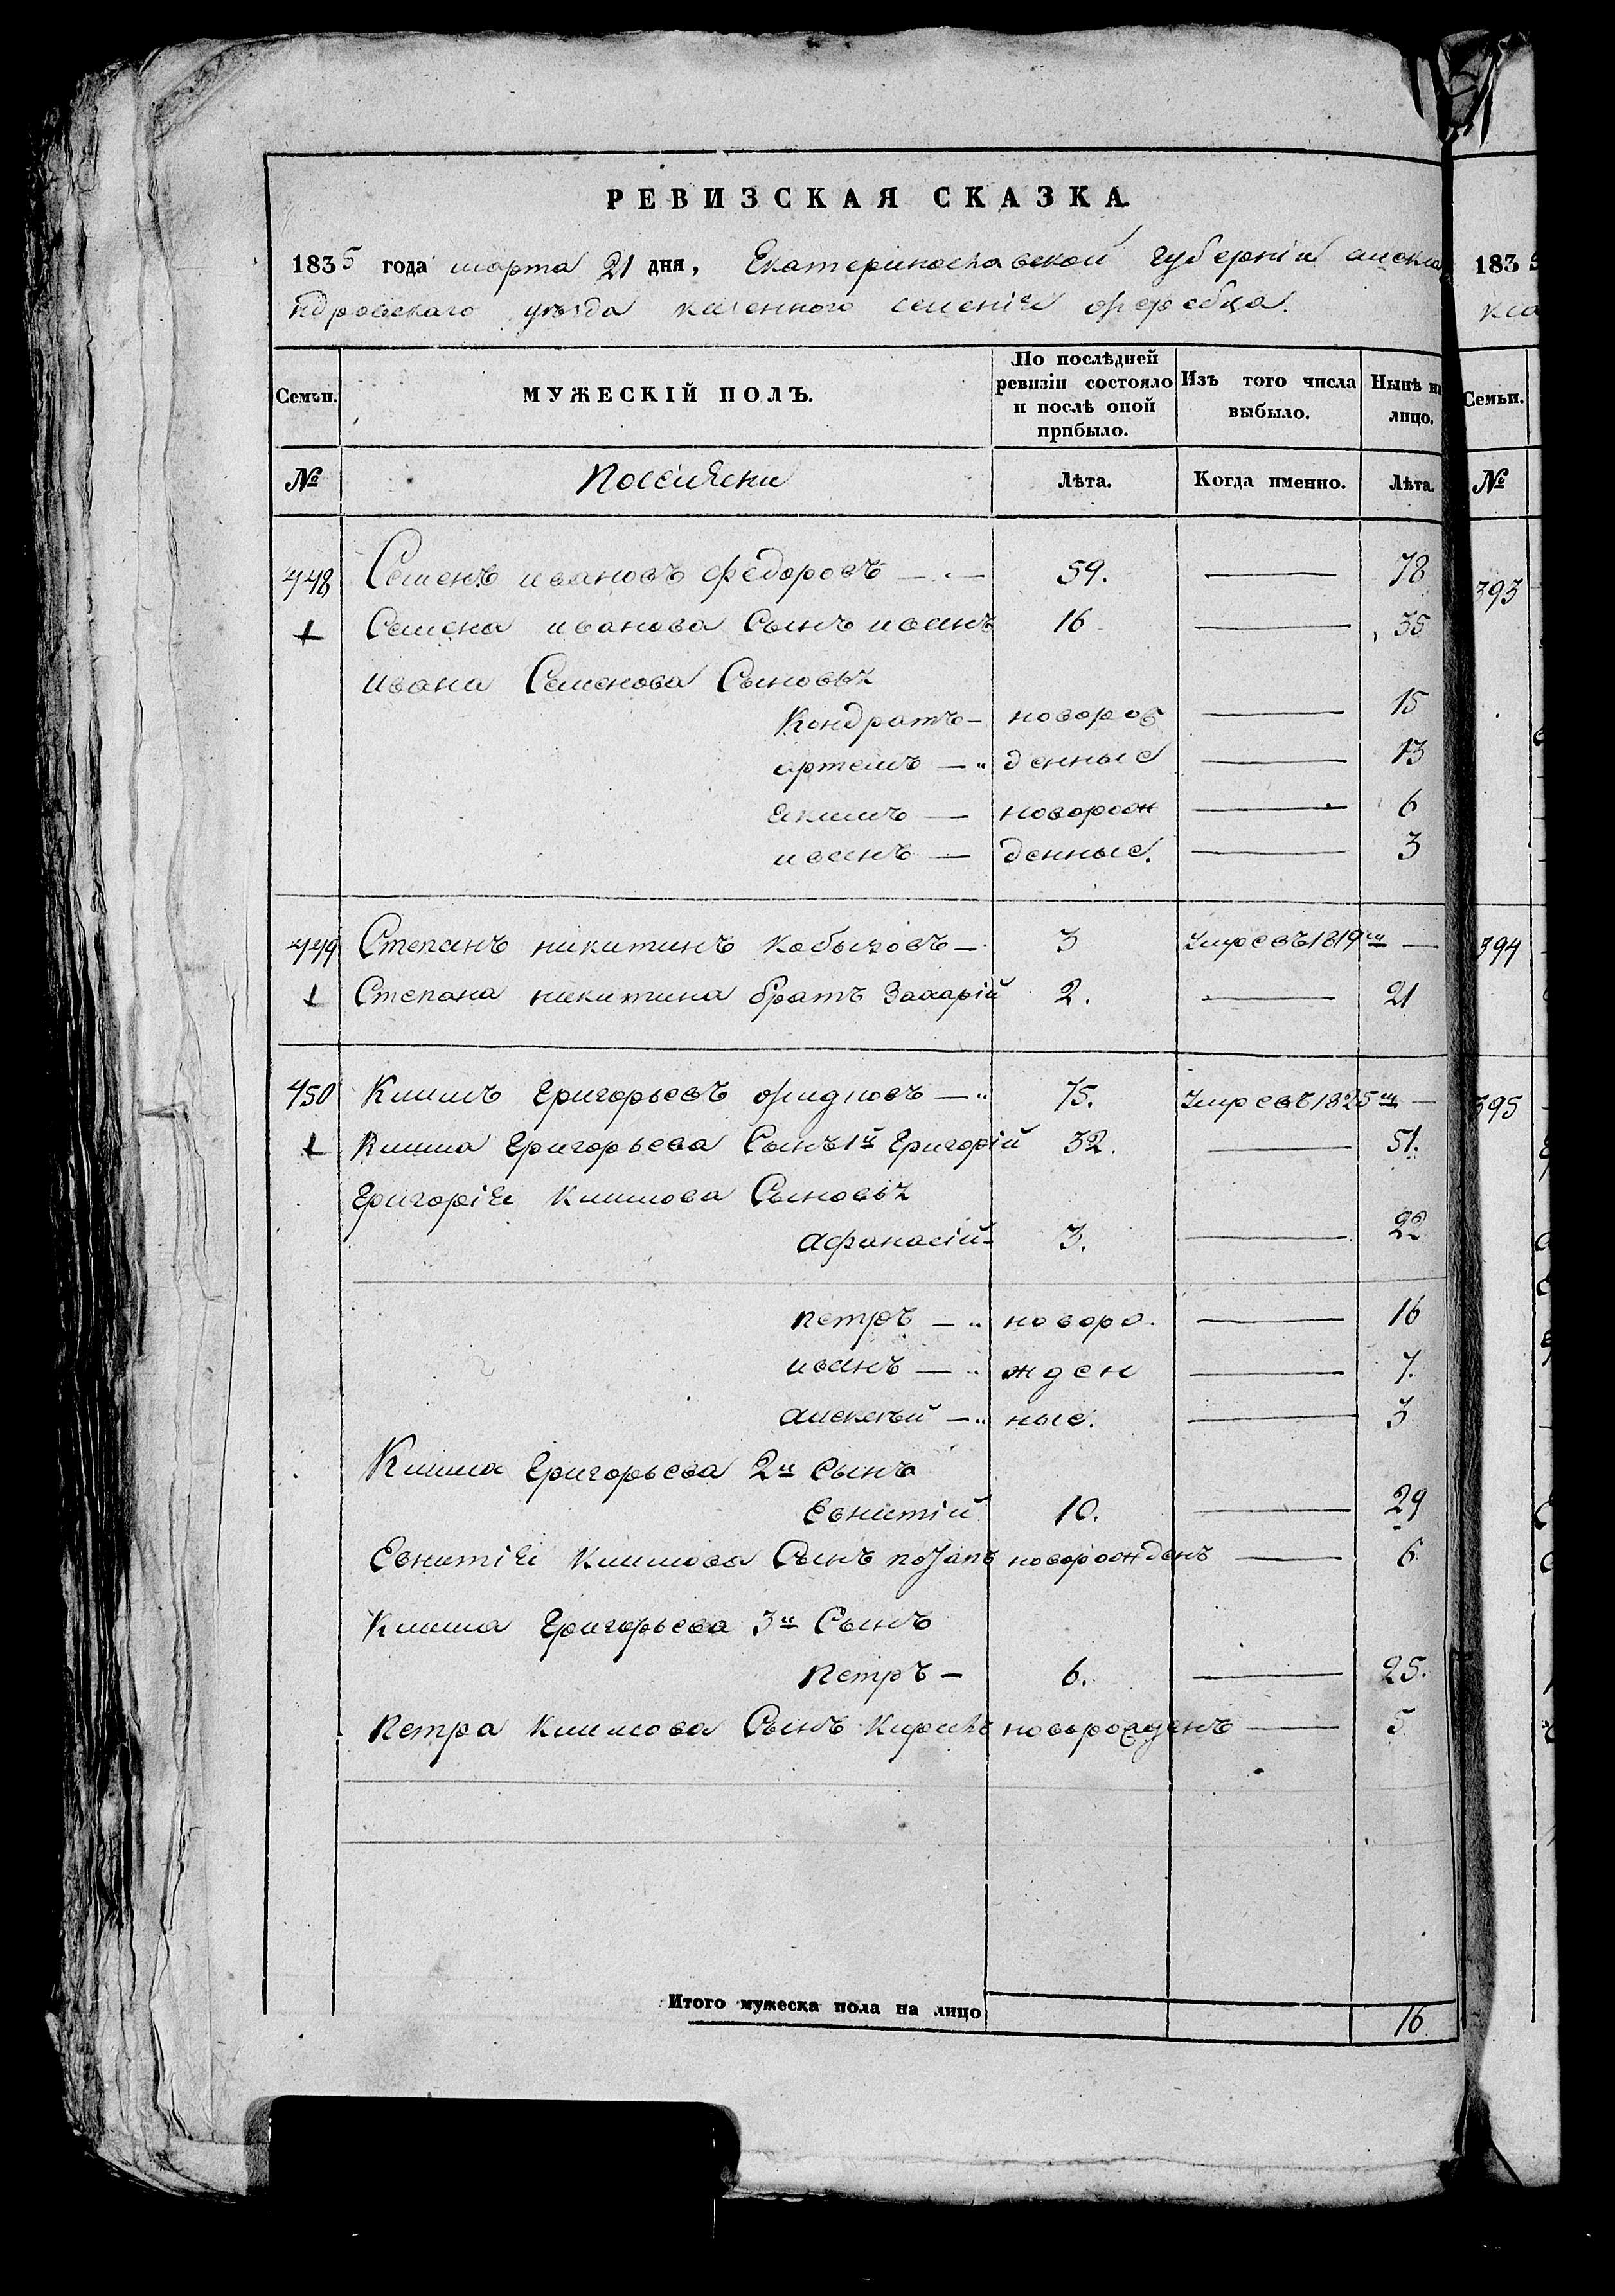 РЕВИЗСКАЯ СКАЗКА.
1835 года марта 21 дня, Екатеринославской губернiи алекса
ндровскаго уѣзда казенного селенiя орехова.
Семьи. МУЖЕСКІЙ ПОЛЪ. По послѣдней ревизіи состояло и послѣ оной прибыло. Изъ того числа выбыло. Нынѣ на лицо.
№ Поселяни Лѣта. Когда именно. Лѣта.
448 Семенъ ивановъ федоровъ — 59. — 78
+ Семена иванова Сынъ иванъ 16 — 35
ивана Семенова Сыновья
Кондратъ — новорож — 15
артемъ — денные — 13
якимъ — новорож — 6
иванъ — денные. — 3
449 Степанъ никитинъ — 3 умре въ 1819м —
+ Степана никитина братъ Захарій 2. — 21
450 Климъ Григорьевъ — 75. умре въ 1825м —
+ Клима Григорьева Сынъ 1й Григорій 32. — 51.
Григорія Климова Сыновья
афанасій — 3. — 22
петръ — новоро — 16
иванъ — жден — 7.
алексѣй — ные. — 3
Клима Григорьева 2й Сынъ
10. — 29
Климова Сынъ потапъ новорожденъ — 6
Клима Григорьева 3й Сынъ
Петръ — 6. — 25.
Петра Климова Сынъ новорожденъ — 5
Итого мужеска пола на лицо 16
1835
Семьи.
№
393
394
395